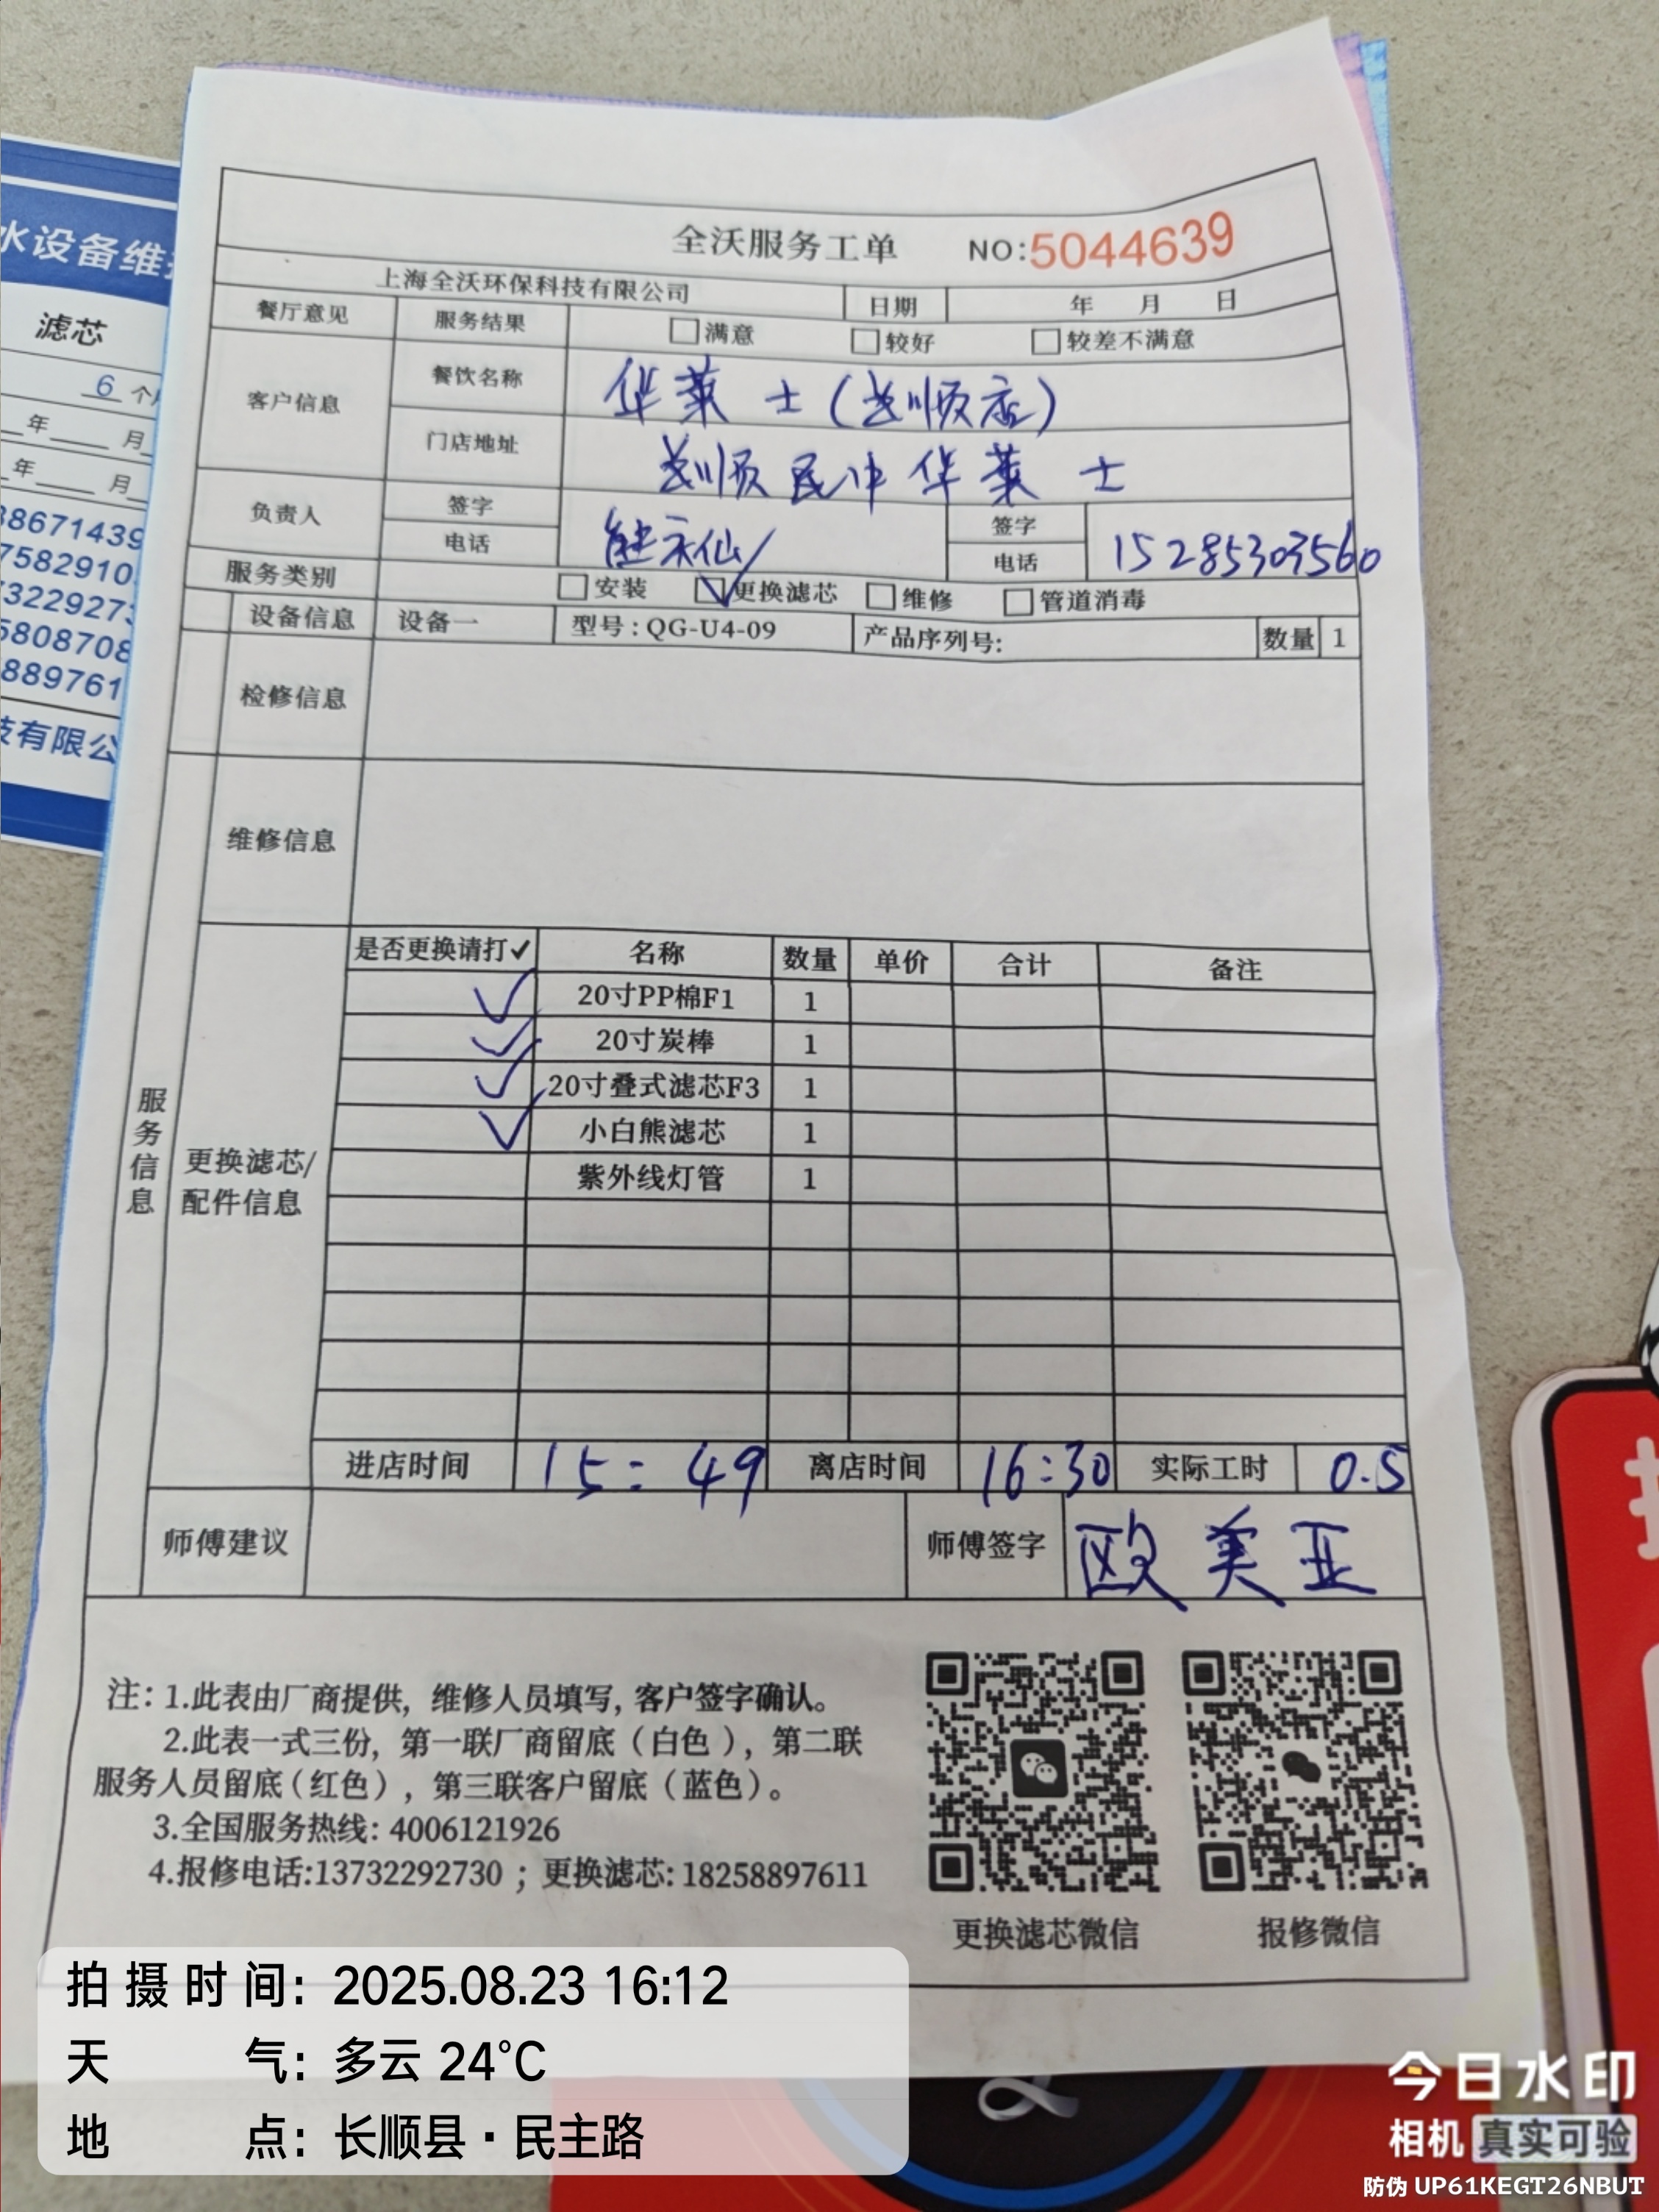 水设备维
滤芯
6 个月
年 月
年 月
3867143
7582910
7322927
5808708
889761
技有限公
全沃服务工单 NO:5044639
上海全沃环保科技有限公司 日期 年 月 日
餐厅意见 服务结果 满意 较好 较差不满意
客户信息 餐饮名称 华莱士(长顺店)
门店地址 长顺民中华莱士
负责人 签字 签字
电话 电话 15285303560
服务类别 安装 ✓更换滤芯 维修 管道消毒
设备信息 设备一 型号:QG-U4-09 产品序列号: 数量 1
检修信息
维修信息
服务信息
更换滤芯/
配件信息
是否更换请打✓ 名称 数量 单价 合计 备注
✓ 20寸PP棉F1 1
✓ 20寸炭棒 1
✓ 20寸叠式滤芯F3 1
✓ 小白熊滤芯 1
紫外线灯管 1
进店时间 15:49 离店时间 16:30 实际工时 0.5
师傅建议 师傅签字 欧美亚
注:1.此表由厂商提供,维修人员填写,客户签字确认。
2.此表一式三份,第一联厂商留底(白色),第二联
服务人员留底(红色),第三联客户留底(蓝色)。
3.全国服务热线:4006121926
4.报修电话:13732292730;更换滤芯:18258897611
更换滤芯微信 报修微信
拍摄时间:2025.08.23 16:12
天气:多云 24°C
地点:长顺县·民主路
今日水印
相机 真实可验
防伪 UP61KEGT26NBUT